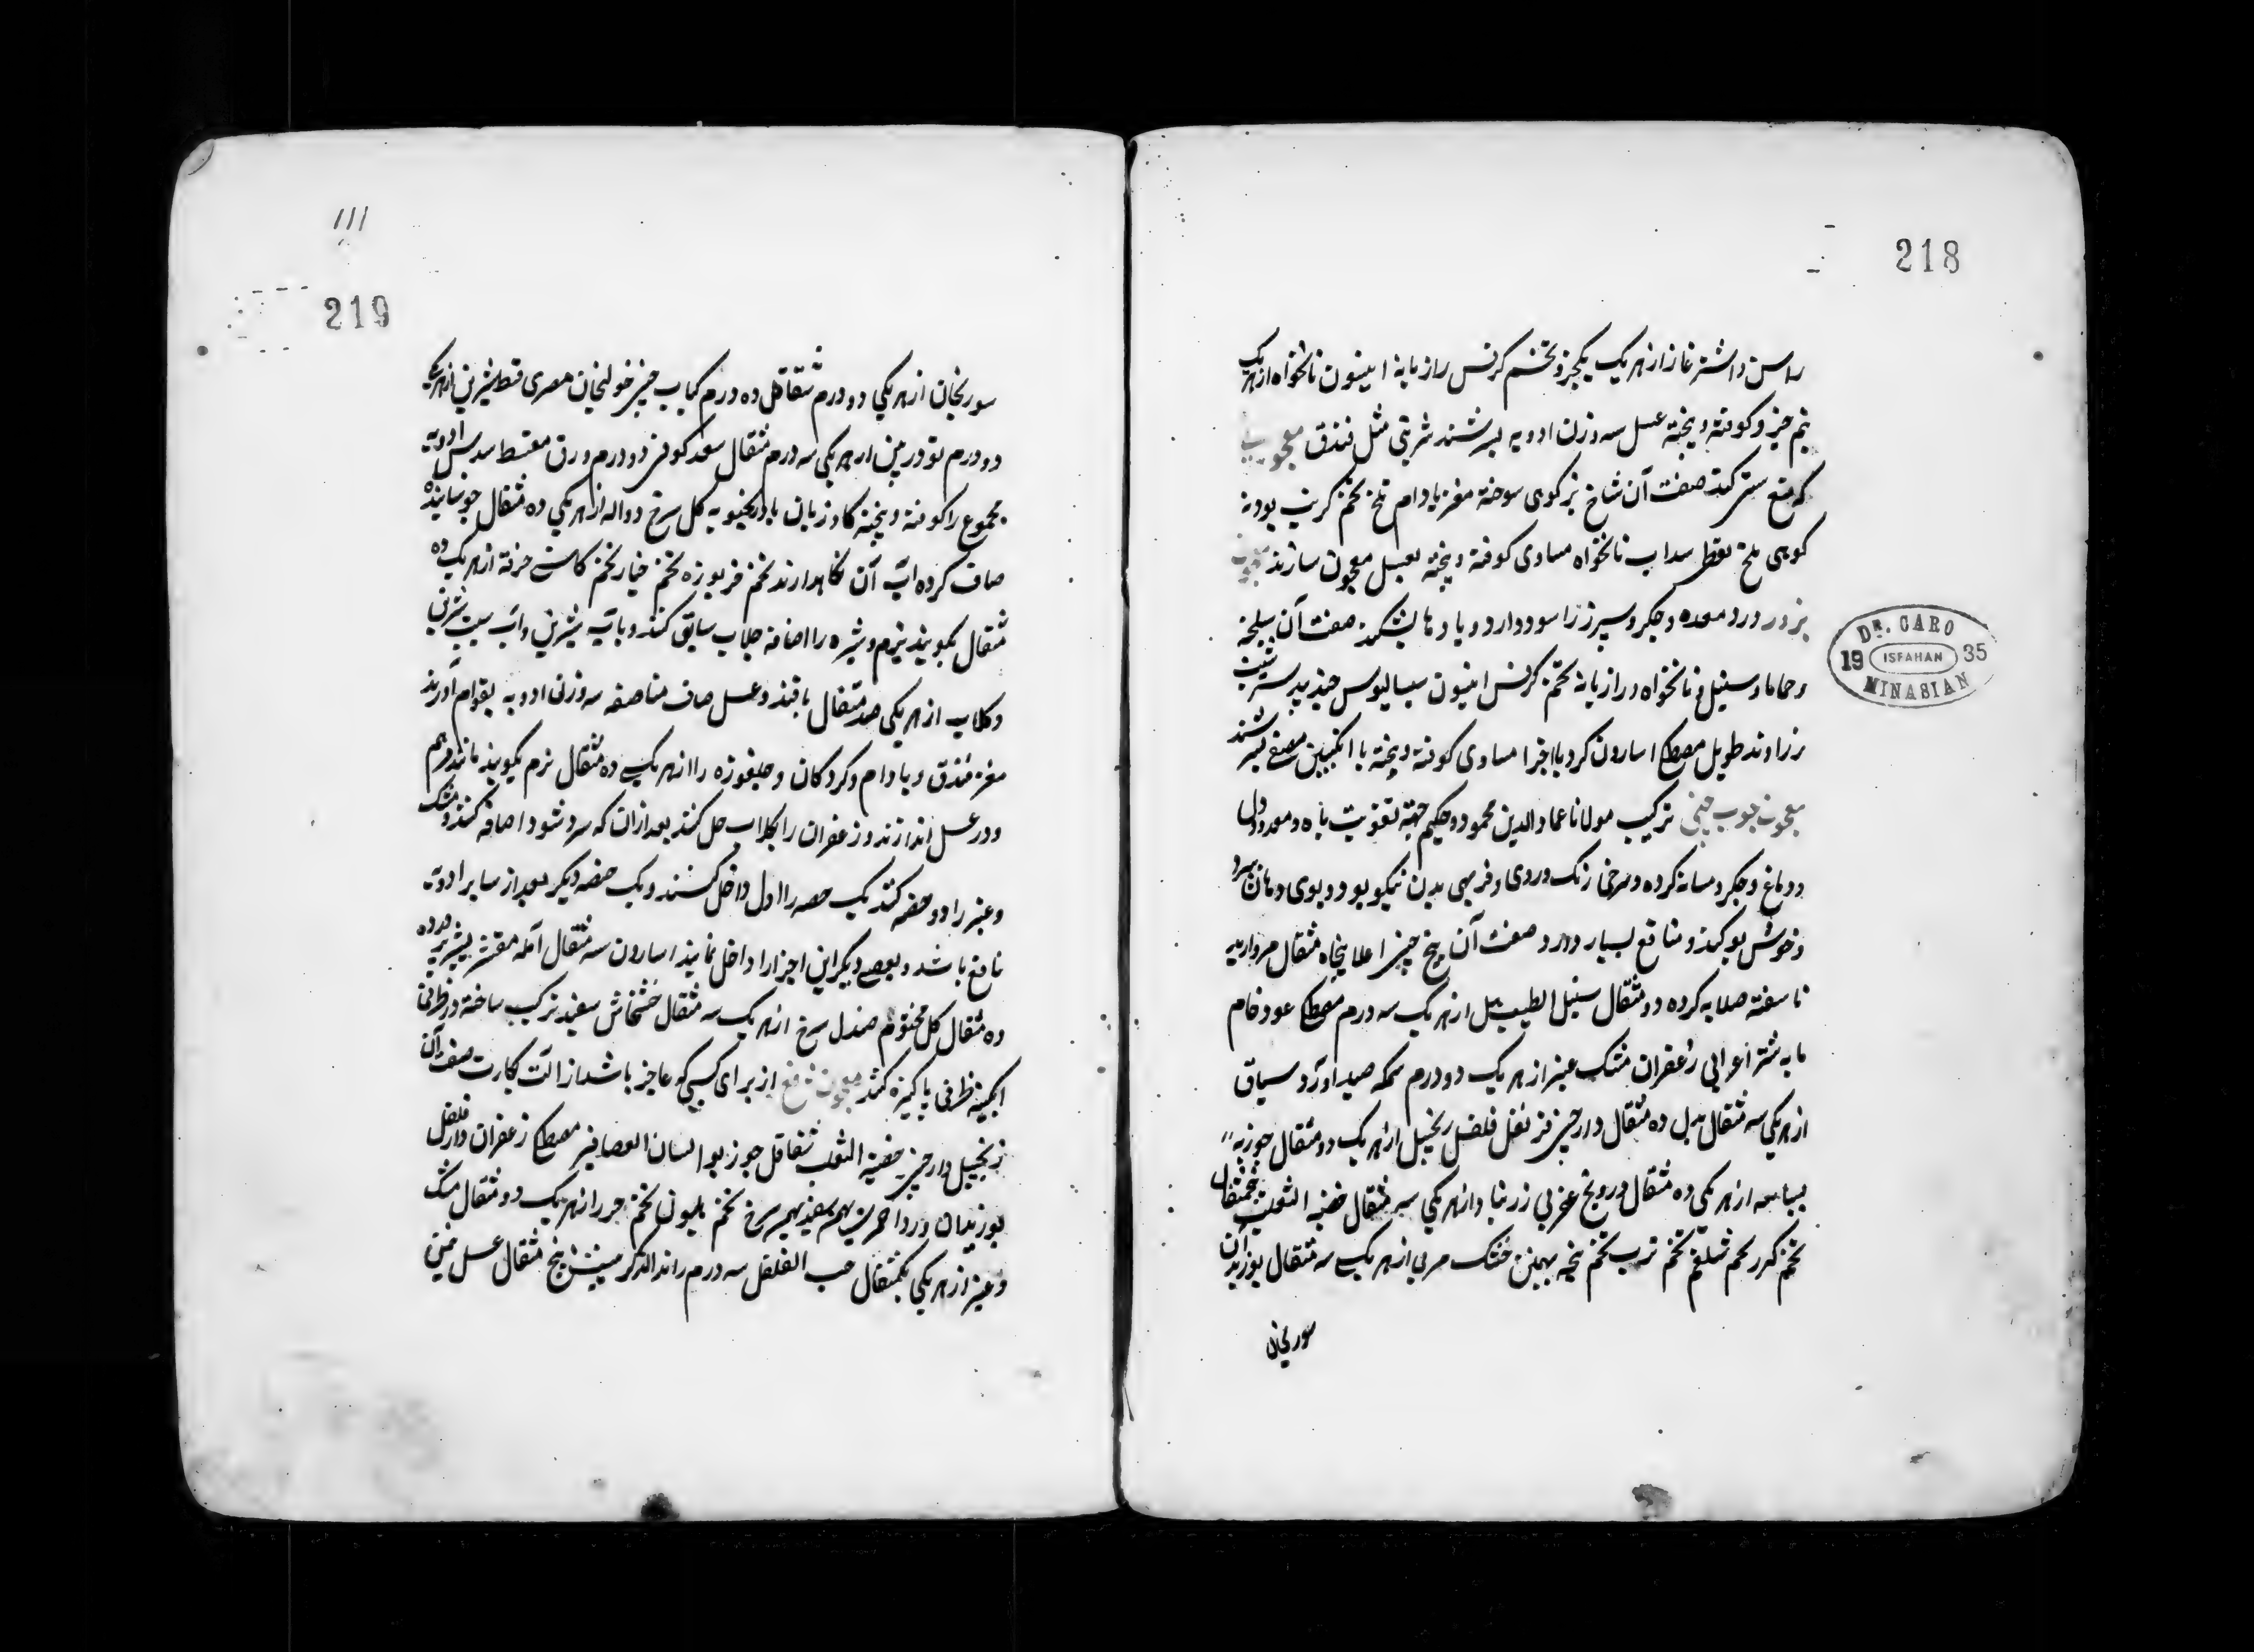 218
راسن و اشترغاز از هر یک یکجزو تخم کرفس رازیانه انیسون نانخواه از هر یک
نیم جزو کوفته و بیخته عسل سه وزن ادویه بسرشند شربتی مثل فندق معجونی
که منع ستی کند صفت آن شاخ بز کوهی سوخته مغز بادام تلخ تخم کرنب پودنه
کوهی ملح نفطی سداب نانخواه مساوی کوفته و بیخته بعسل معجون سازند معجون
بزور درد معده و جگر و سپرز را سود دارد و بادها بشکند صفت آن سلیخه
و حماما و سنبل و نانخواه و رازیانه تخم کرفس انیسون سیسالیوس جندبیدستر شبت
زراوند طویل مصطکی اسارون کرویا اجزا مساوی کوفته و بیخته با انگبین مصفی بسرشند
معجون چوب چینی ترکیب مولانا عمادالدین محمود حکیم جهة تقویت باه و معده و دل
و دماغ و جگر و مسانه کرده و سرخی رنک و روی و فربهی بدن نیکو بود و بوی دهان ببرد
و خوش بو کند و منافع بسیار دارد صفت آن بیخ چینی اعلا پنجاه مثقال مروارید
ناسفته صلایه کرده دو مثقال سنبل الطیب هیل از هر یک سه درم مصطکی عود خام
مایه شتر اعرابی زعفران مشک عنبر از هر یک دو درم سمکه صیدا و آرد سیاق
از هر یکی سه مثقال هیل ده مثقال دارچینی قرنفل فلفل زنجبیل از هر یک دو مثقال جوزبه
بسباسه از هر یکی ده مثقال درونج عقربی زرنباد از هر یکی سه مثقال خصیة الثعلب پنجمثقال
تخم گزر تخم شلغم تخم ترب تخم پنجه بهمن خشک مربی از هر یک سه مثقال بوزیدان
سورنجان
DR. CARO
19 ISFAHAN 35
MINASIAN
111
219
سورنجان از هر یکی دو درم شقاقل ده درم کبابه چینی خولنجان مصری قسط شیرین از هر یک
دو درم تودرین از هر یکی سه درم مثقال سعد کوفی دو درم ورق
مجموع را کوفته و بیخته کاوزبان بادرنجبویه کل سرخ دواله از هر یکی ده مثقال جوشانیده
صاف کرده آب آن نکاهدارند تخم خربوزه تخم خیار تخم کاسنی خرفه از هر یک ده
مثقال بکوبند نرم و شیره را اضافه جلاب سابق کنند و باب به شیرین و آب سیب شیرین
و کلاب از هر یکی صد مثقال با قند و عسل صاف مناصفه سه وزن ادویه بقوام آورند
مغز فندق و بادام و کردکان و چلغوزه را از هر یک ده مثقال نرم بکوبند مانند مرهم
و در عسل اندازند و زعفران را بکلاب حل کنند بعد از ان که سرد شود اضافه کنند و مشک
و عنبر را دو حصه کنند یک حصه را اول داخل کنند و یک حصه دیگر بعد از سایر ادویه
نافع باشد و بعضی دیگر این اجزا را داخل نمایند اسارون سه مثقال آمله مقشر بشیر پرورده
ده مثقال کل مختوم صندل سرخ از هر یک سه مثقال خشخاش سفید ترکیب ساخته در ظرفی
ابکینه ظرفی پاکیزه کنند معجون نافع از برای کسی که عاجز باشد از الت بکارت صفت آن
زنجبیل دارچینی خصیة الثعلب شقاقل جوز بوا لسان العصافیر مصطکی زعفران دار فلفل
بوزیدان ورد احمر بهمن سفید بهمن سرخ تخم هلیون تخم جرر از هر یک دو مثقال مشک
و عنبر از هر یکی یکمثقال حب الفلفل سه درم پنج مثقال عسل